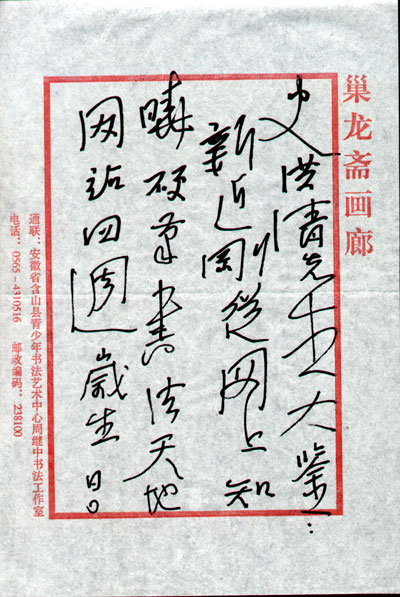 巢龙斋画廊
史洪清先生大鉴：
新近刚從网上知
晓硬笔书法天地
网站四週歲生日
通联：安徽省含山县青少年书法艺术中心周继中书法工作室
电话：0565-4310516 邮政编码：238100